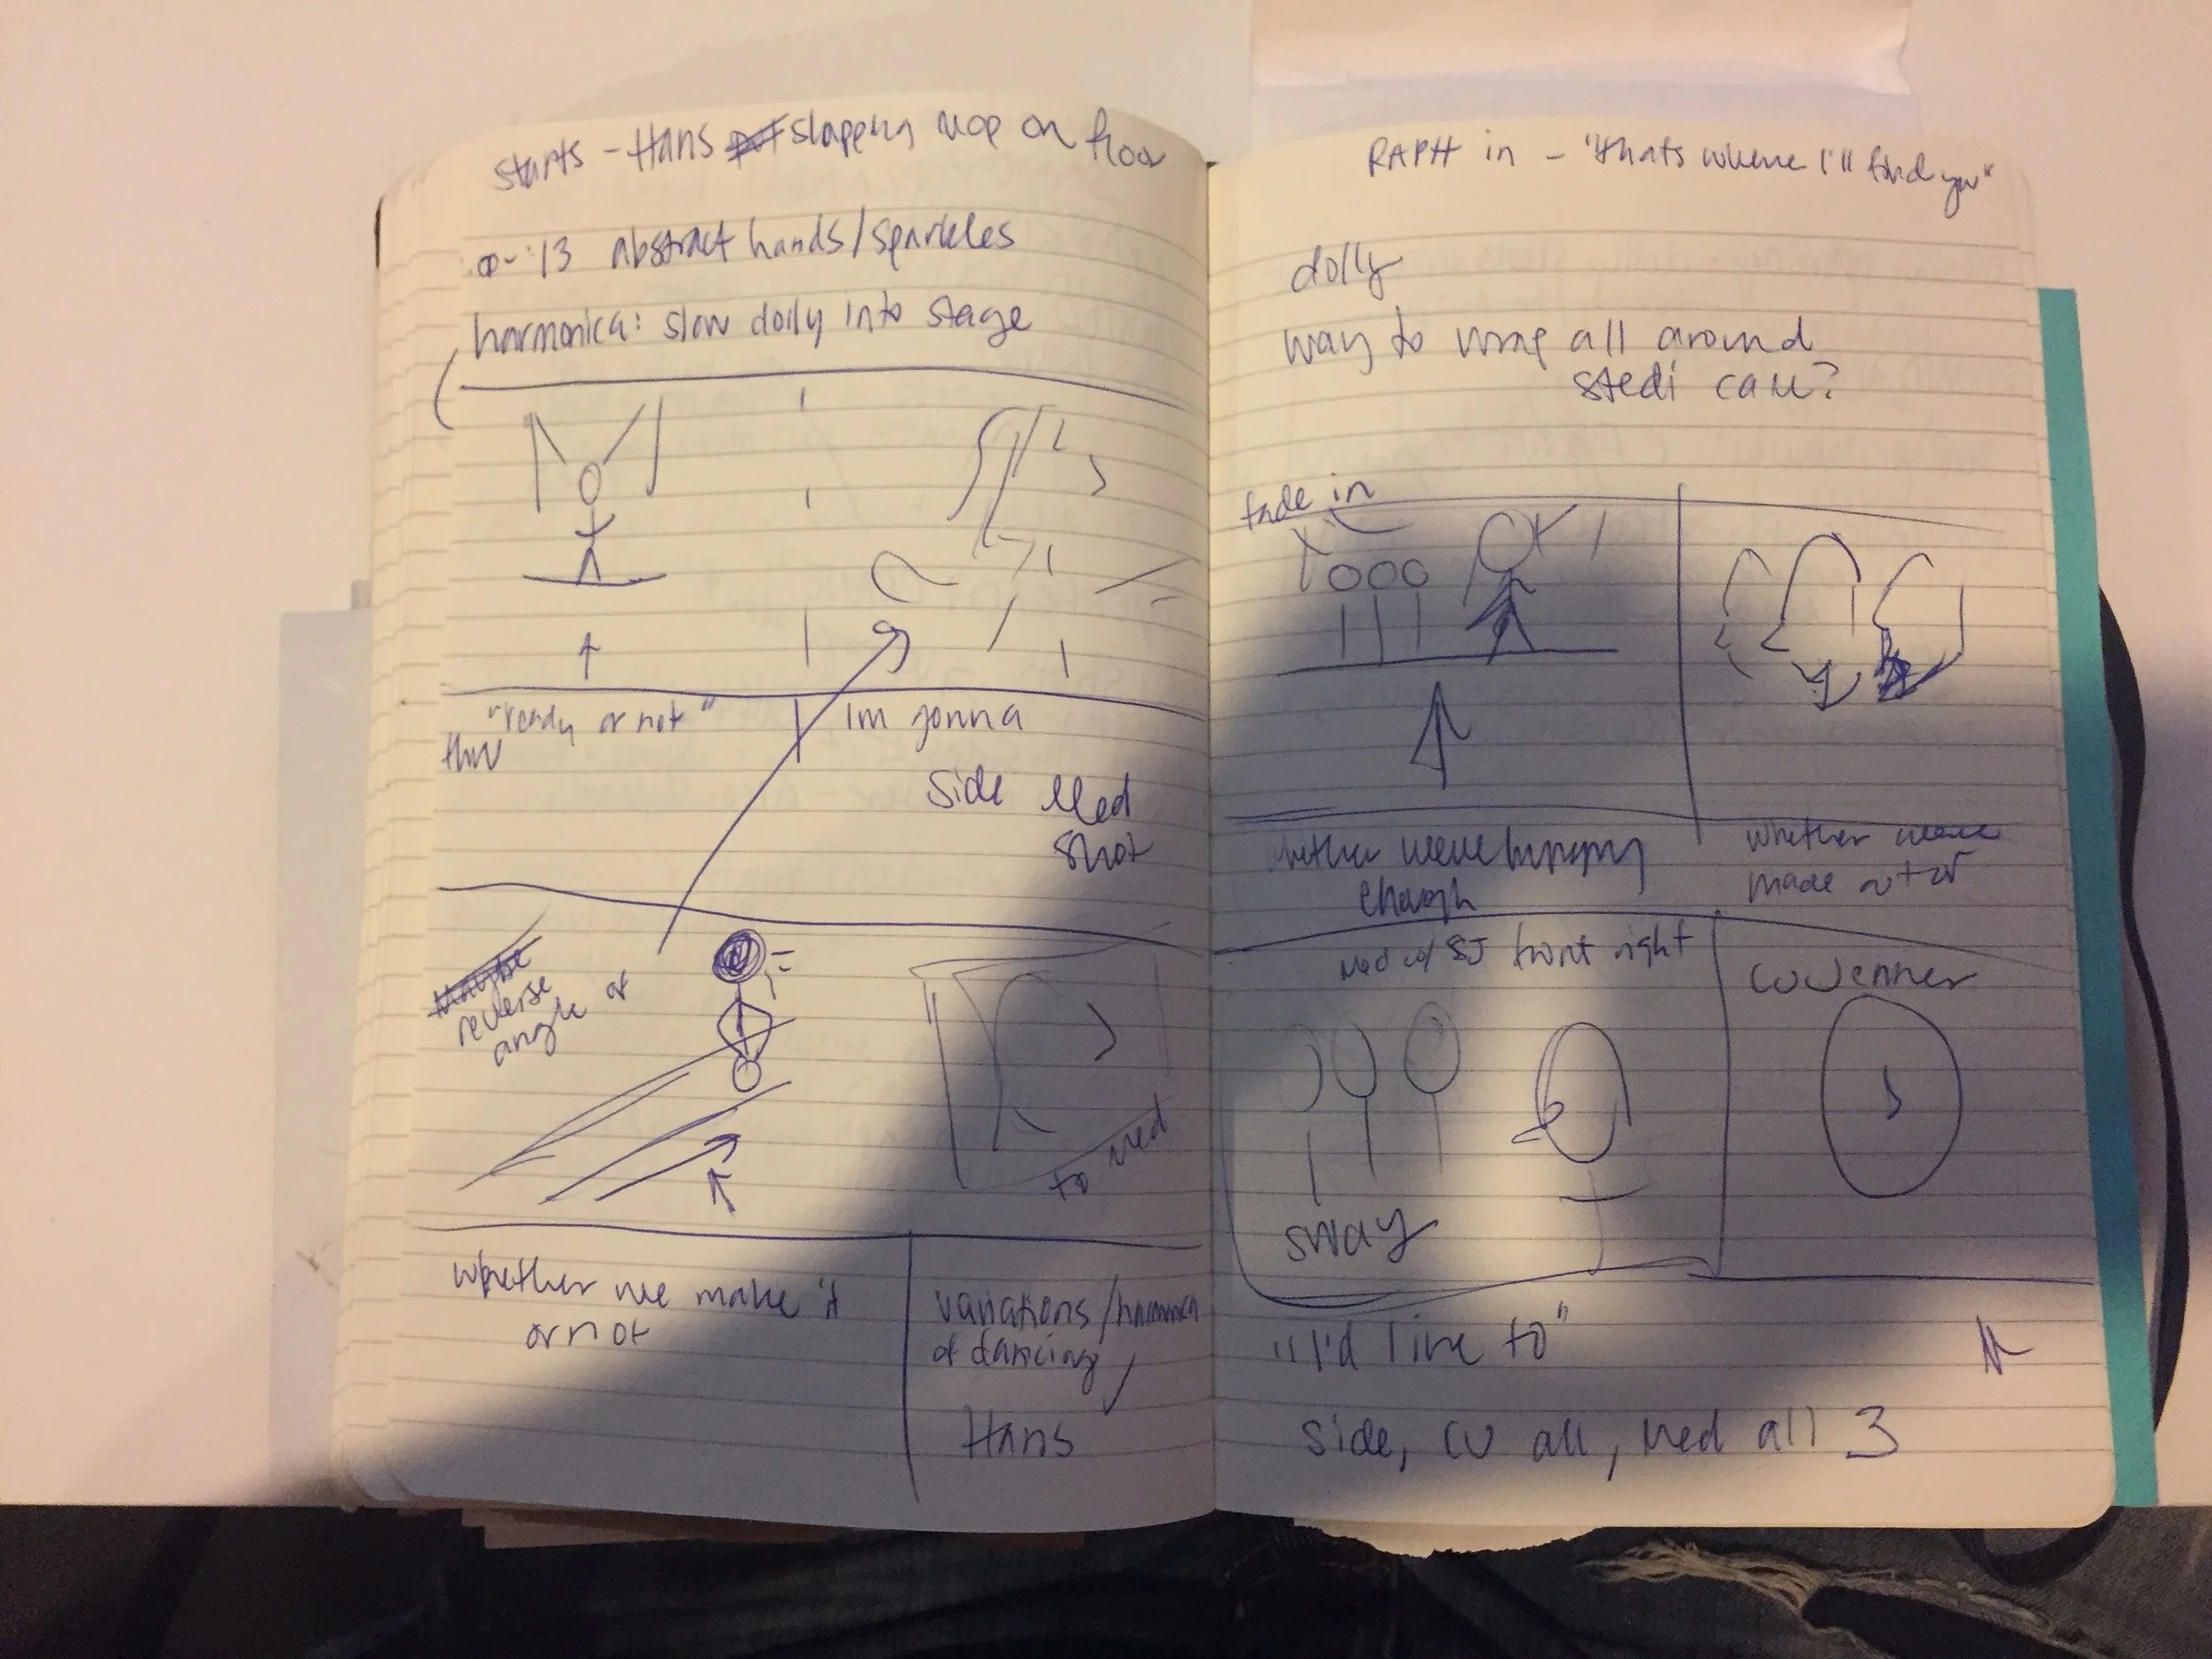 starts - Hans slapping mop on floor
0-:13 abstract hands/sparkles
harmonica: slow dolly into stage
"ready or not"
thru
Im gonna
Side Med
Shot
Maybe
reverse
angle of
to Med
whether we make it
or not
variations/harmonica
of dancing
Hans
RAPH in - "thats where I'll find you"
dolly
way to wrap all around
stedi cam?
fade in
whether we're hungry
enough
whether we're
made out of
Med w/ SJ front right
CU Jenner
sway
"I'd like to"
side, CU all, Med all 3